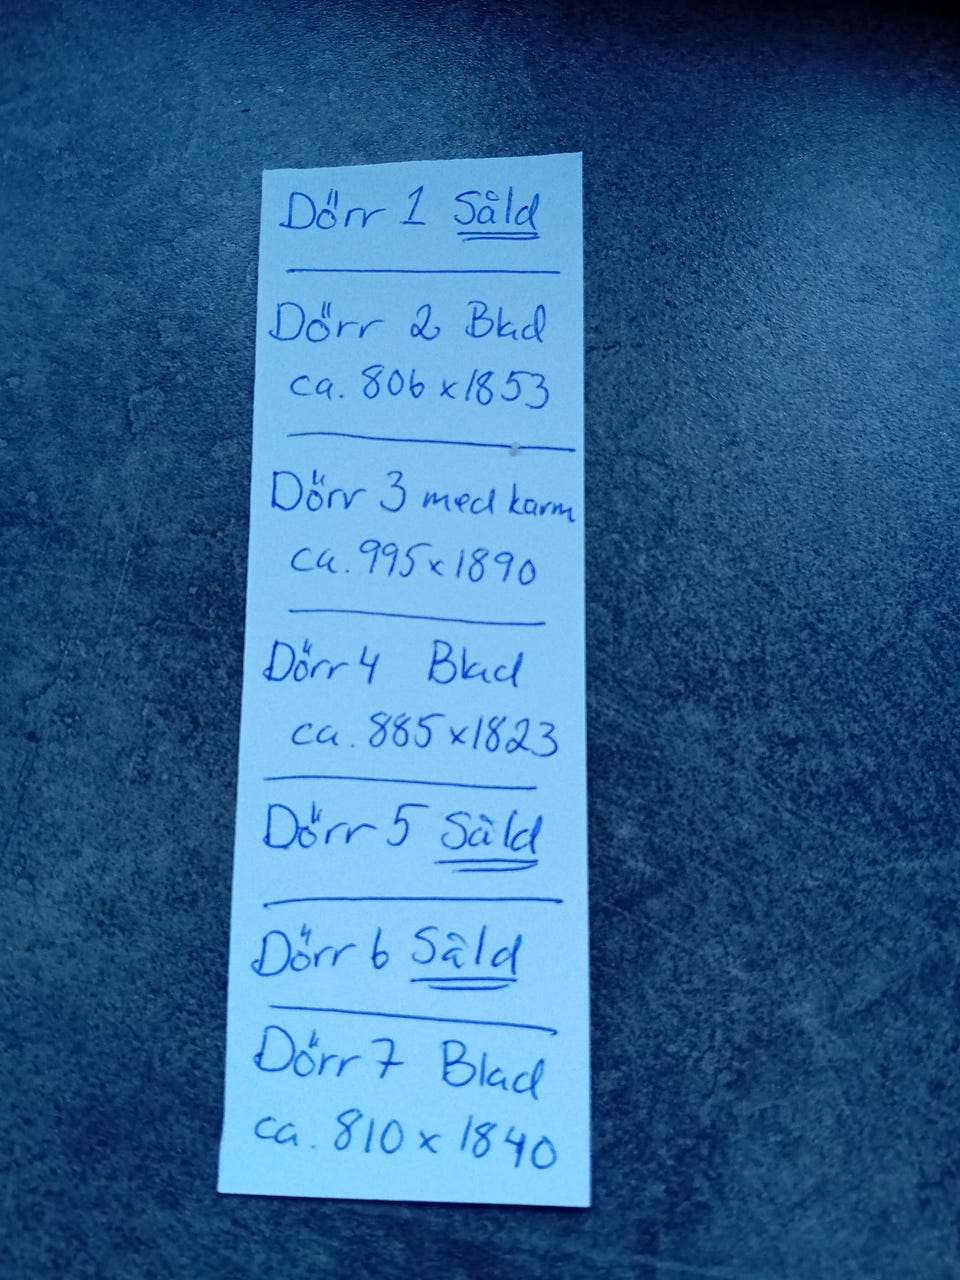 Dörr 1 Såld
Dörr 2 Blad
ca. 806 x 1853
Dörr 3 med karm
ca. 995 x 1890
Dörr 4 Blad
ca. 885 x 1823
Dörr 5 Såld
Dörr 6 Såld
Dörr 7 Blad
ca. 810 x 1840